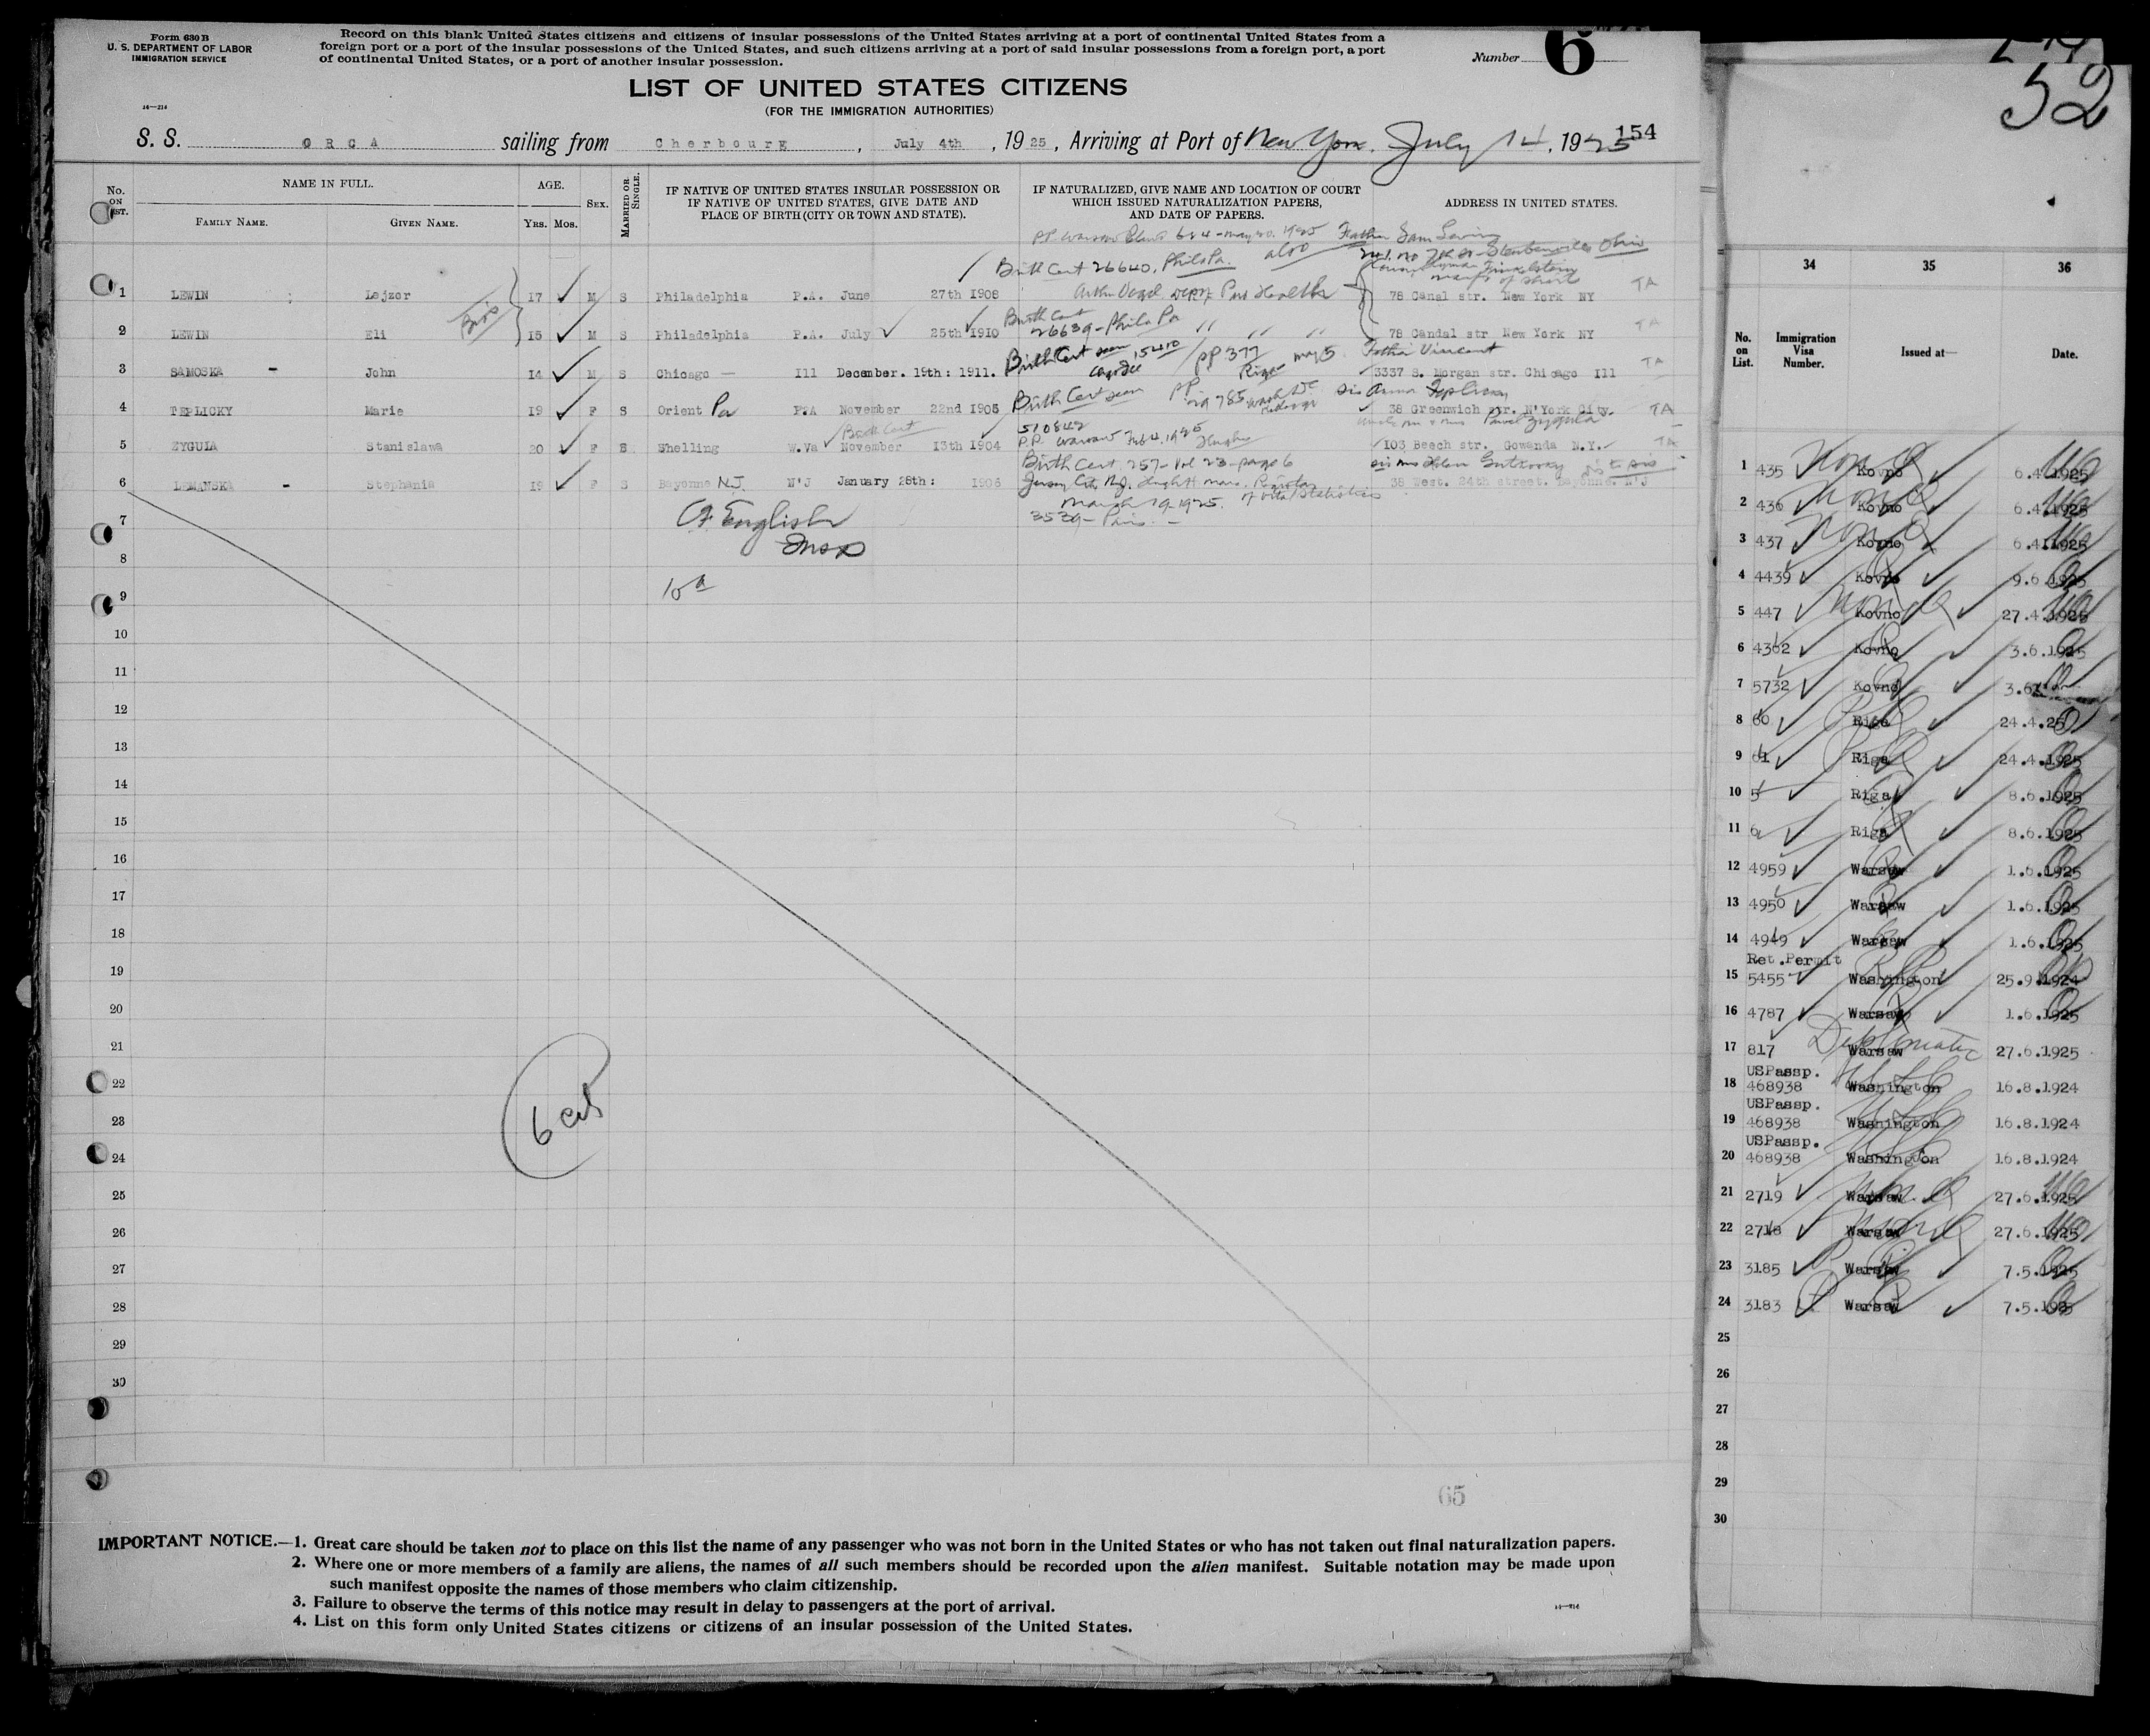 Form 630 B
U. S. DEPARTMENT OF LABOR
IMMIGRATION SERVICE
Record on this blank United States citizens and citizens of insular possessions of the United States arriving at a port of continental United States from a
foreign port or a port of the insular possessions of the United States, and such citizens arriving at a port of said insular possessions from a foreign port, a port
of continental United States, or a port of another insular possession.
Number 6
LIST OF UNITED STATES CITIZENS
(FOR THE IMMIGRATION AUTHORITIES)
S. S. ORCA sailing from Cherbourg, July 4th, 1925, Arriving at Port of New York. July 14, 1925
154
No. ON LIST.
NAME IN FULL.
FAMILY NAME. GIVEN NAME.
AGE.
Yrs. Mos.
SEX.
MARRIED OR SINGLE.
IF NATIVE OF UNITED STATES INSULAR POSSESSION OR
IF NATIVE OF UNITED STATES, GIVE DATE AND
PLACE OF BIRTH (CITY OR TOWN AND STATE).
IF NATURALIZED, GIVE NAME AND LOCATION OF COURT
WHICH ISSUED NATURALIZATION PAPERS,
AND DATE OF PAPERS.
ADDRESS IN UNITED STATES.
PP. Warsaw 624 - May 20. 1925 Father Sam
Birth Cert 26640, Phila Pa. also Steubenville Ohio
1 LEWIN Lejzor 17 M S Philadelphia P.A. June 27th 1908 78 Canal str. New York NY TA
Birth Cert
26639 - Phila Pa " " "
2 LEWIN Eli 15 M S Philadelphia P.A. July 25th 1910 78 Candal str New York NY TA
Birth Cert seen 15410 PP 377 May 5 Father Vincent
Riga
3 SAMOSKA - John 14 M S Chicago — Ill December. 19th: 1911. 3337 S. Morgan str. Chicago Ill TA
Birth Cert seen PP Wash DC Sis Anna
4 TEPLICKY Marie 19 F S Orient Pa P.A November 22nd 1905 38 Greenwich str. N'York City. TA
Birth Cert
510842
P.P. Warsaw Feb 4, 1925
5 ZYGULA Stanislawa 20 F S Shelling W.Va November 13th 1904 103 Beech str. Gowanda N.Y. TA
Birth Cert. 257 - Vol 23 - page 6 Sis Mrs Helen
6 LEMANSKA - Stephania 19 F S Bayonne N.J. N'J January 28th: 1906 38 West. 24th street. Bayonne. N'J
Jersey City N.J.
of Vital Statistics
March 19 1925.
3539 - Paris. -
7
English
Insp
8
9
10 a
10
11
12
13
14
15
16
17
18
19
20
21
22
23
6 cit
24
25
26
27
28
29
30
65
IMPORTANT NOTICE.—1. Great care should be taken not to place on this list the name of any passenger who was not born in the United States or who has not taken out final naturalization papers.
2. Where one or more members of a family are aliens, the names of all such members should be recorded upon the alien manifest. Suitable notation may be made upon
such manifest opposite the names of those members who claim citizenship.
3. Failure to observe the terms of this notice may result in delay to passengers at the port of arrival.
4. List on this form only United States citizens or citizens of an insular possession of the United States.
52
34 35 36
No. on List. Immigration Visa Number. Issued at— Date.
1 435 Kovno 6.4.1925
2 436 Kovno 6.4.1925
3 437 Kovno 6.4.1925
4 4439 Kovno 9.6.1925
5 447 Kovno 27.4.1925
6 4362 Kovno 3.6.1925
7 5732 Kovno 3.6
8 60 Riga 24.4.25
9 61 Riga 24.4.1925
10 5 Riga 8.6.1925
11 6 Riga 8.6.1925
12 4959 Warsaw 1.6.1925
13 4950 Warsaw 1.6.1925
14 4949 Warsaw 1.6.1925
Ret.Permit
15 5455 Washington 25.9.1924
16 4787 Warsaw 1.6.1925
17 817 Warsaw Diplomatic 27.6.1925
USPassp.
18 468938 Washington 16.8.1924
USPassp.
19 468938 Washington 16.8.1924
USPassp.
20 468938 Washington 16.8.1924
21 2719 Warsaw 27.6.1925
22 2718 Warsaw 27.6.1925
23 3185 Warsaw 7.5.1925
24 3183 Warsaw 7.5.1925
25
26
27
28
29
30